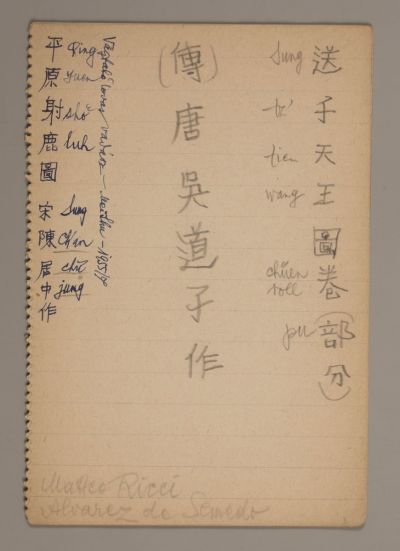 送子天王圖卷(部分)
Sung tz' tien wang chüen roll pu
(傳)唐吳道子作
Vágtató lovas vadász – Meishu – 1955/9
Ping yuen shö luh Sung Ch'an chü jung
平原射鹿圖 宋陳居中作
Matteo Ricci
Alvarez de Semedo